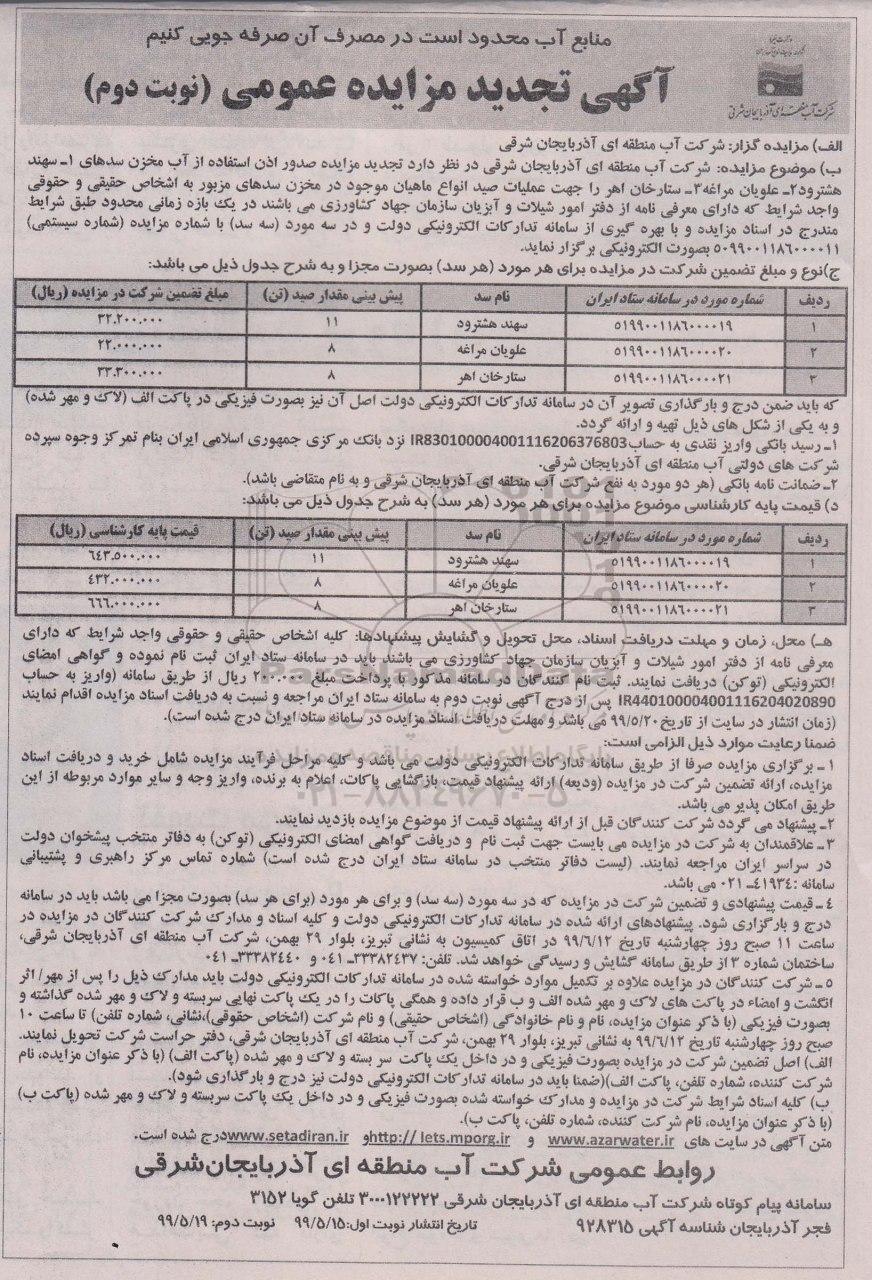 منابع آب محدود است در مصرف آن صرفه جویی کنیم
شرکت آب منطقه ای آذربایجان شرقی
آگهی تجدید مزایده عمومی (نوبت دوم)
الف) مزایده گزار: شرکت آب منطقه ای آذربایجان شرقی
ب) موضوع مزایده: شرکت آب منطقه ای آذربایجان شرقی در نظر دارد تجدید مزایده صدور اذن استفاده از آب مخزن سدهای ۱ـ سهند
هشترود۲ـ علویان مراغه۳ـ ستارخان اهر را جهت عملیات صید انواع ماهیان موجود در مخزن سدهای مزبور به اشخاص حقیقی و حقوقی
واجد شرایط که دارای معرفی نامه از دفتر امور شیلات و آبزیان سازمان جهاد کشاورزی می باشند در یک بازه زمانی محدود طبق شرایط
مندرج در اسناد مزایده و با بهره گیری از سامانه تدارکات الکترونیکی دولت و در سه مورد (سه سد) با شماره مزایده (شماره سیستمی)
۵۰۹۹۰۰۱۱۸۶۰۰۰۰۱۱ بصورت الکترونیکی برگزار نماید.
ج)نوع و مبلغ تضمین شرکت در مزایده برای هر مورد (هر سد) بصورت مجزا و به شرح جدول ذیل می باشد:
ردیف شماره مورد در سامانه ستاد ایران نام سد پیش بینی مقدار صید (تن) مبلغ تضمین شرکت در مزایده (ریال)
۱ ۵۱۹۹۰۰۱۱۸۶۰۰۰۰۱۹ سهند هشترود ۱۱ ۳۲.۲۰۰.۰۰۰
۲ ۵۱۹۹۰۰۱۱۸۶۰۰۰۰۲۰ علویان مراغه ۸ ۲۲.۰۰۰.۰۰۰
۳ ۵۱۹۹۰۰۱۱۸۶۰۰۰۰۲۱ ستارخان اهر ۸ ۳۳.۳۰۰.۰۰۰
که باید ضمن درج و بارگذاری تصویر آن در سامانه تدارکات الکترونیکی دولت اصل آن نیز بصورت فیزیکی در پاکت الف (لاک و مهر شده)
و به یکی از شکل های ذیل تهیه و ارائه گردد.
۱ـ رسید بانکی واریز نقدی به حساب IR830100004001116206376803 نزد بانک مرکزی جمهوری اسلامی ایران بنام تمرکز وجوه سپرده
شرکت های دولتی آب منطقه ای آذربایجان شرقی.
۲ـ ضمانت نامه بانکی (هر دو مورد به نفع شرکت آب منطقه ای آذربایجان شرقی و به نام متقاضی باشد).
د) قیمت پایه کارشناسی موضوع مزایده برای هر مورد (هر سد) به شرح جدول ذیل می باشد:
ردیف شماره مورد در سامانه ستاد ایران نام سد پیش بینی مقدار صید (تن) قیمت پایه کارشناسی (ریال)
۱ ۵۱۹۹۰۰۱۱۸۶۰۰۰۰۱۹ سهند هشترود ۱۱ ۶۴۳.۵۰۰.۰۰۰
۲ ۵۱۹۹۰۰۱۱۸۶۰۰۰۰۲۰ علویان مراغه ۸ ۴۳۲.۰۰۰.۰۰۰
۳ ۵۱۹۹۰۰۱۱۸۶۰۰۰۰۲۱ ستارخان اهر ۸ ۶۶۶.۰۰۰.۰۰۰
هـ) محل، زمان و مهلت دریافت اسناد، محل تحویل و گشایش پیشنهادها: کلیه اشخاص حقیقی و حقوقی واجد شرایط که دارای
معرفی نامه از دفتر امور شیلات و آبزیان سازمان جهاد کشاورزی می باشند باید در سامانه ستاد ایران ثبت نام نموده و گواهی امضای
الکترونیکی (توکن) دریافت نمایند. ثبت نام کنندگان در سامانه مذکور با پرداخت مبلغ ۲۰۰.۰۰۰ ریال از طریق سامانه (واریز به حساب
IR440100004001116204020890 پس از درج آگهی نوبت دوم به سامانه ستاد ایران مراجعه و نسبت به دریافت اسناد مزایده اقدام نمایند
(زمان انتشار در سایت از تاریخ ۹۹/۵/۲۰ می باشد و مهلت دریافت اسناد مزایده در سامانه ستاد ایران درج شده است).
ضمنا رعایت موارد ذیل الزامی است:
۱ـ برگزاری مزایده صرفا از طریق سامانه تدارکات الکترونیکی دولت می باشد و کلیه مراحل فرآیند مزایده شامل خرید و دریافت اسناد
مزایده، ارائه تضمین شرکت در مزایده (ودیعه) ارائه پیشنهاد قیمت، بازگشایی پاکات، اعلام به برنده، واریز وجه و سایر موارد مربوطه از این
طریق امکان پذیر می باشد.
۲ـ پیشنهاد می گردد شرکت کنندگان قبل از ارائه پیشنهاد قیمت از موضوع مزایده بازدید نمایند.
۳ـ علاقمندان به شرکت در مزایده می بایست جهت ثبت نام و دریافت گواهی امضای الکترونیکی (توکن) به دفاتر منتخب پیشخوان دولت
در سراسر ایران مراجعه نمایند. (لیست دفاتر منتخب در سامانه ستاد ایران درج شده است) شماره تماس مرکز راهبری و پشتیبانی
سامانه :۴۱۹۳۴ـ ۰۲۱ می باشد.
۴ـ قیمت پیشنهادی و تضمین شرکت در مزایده که در سه مورد (سه سد) و برای هر مورد (برای هر سد) بصورت مجزا می باشد باید در سامانه
درج و بارگزاری شود. پیشنهادهای ارائه شده در سامانه تدارکات الکترونیکی دولت و کلیه اسناد و مدارک شرکت کنندگان در مزایده در
ساعت ۱۱ صبح روز چهارشنبه تاریخ ۹۹/۶/۱۲ در اتاق کمیسیون به نشانی تبریز، بلوار ۲۹ بهمن، شرکت آب منطقه ای آذربایجان شرقی،
ساختمان شماره ۳ از طریق سامانه گشایش و رسیدگی خواهد شد. تلفن: ۳۳۳۸۲۴۳۷ـ ۰۴۱ و ۳۳۳۸۲۴۴۰ـ ۰۴۱
۵ـ شرکت کنندگان در مزایده علاوه بر تکمیل موارد خواسته شده در سامانه تدارکات الکترونیکی دولت باید مدارک ذیل را پس از مهر/ اثر
انگشت و امضاء در پاکت های لاک و مهر شده الف و ب قرار داده و همگی پاکات را در یک پاکت نهایی سربسته و لاک و مهر شده گذاشته و
بصورت فیزیکی (با ذکر عنوان مزایده، نام و نام خانوادگی (اشخاص حقیقی) و نام شرکت (اشخاص حقوقی)،نشانی، شماره تلفن) تا ساعت ۱۰
صبح روز چهارشنبه تاریخ ۹۹/۶/۱۲ به نشانی تبریز، بلوار ۲۹ بهمن، شرکت آب منطقه ای آذربایجان شرقی، دفتر حراست شرکت تحویل نمایند.
الف) اصل تضمین شرکت در مزایده بصورت فیزیکی و در داخل یک پاکت سر بسته و لاک و مهر شده (پاکت الف) (با ذکر عنوان مزایده، نام
شرکت کننده، شماره تلفن، پاکت الف)(ضمنا باید در سامانه تدارکات الکترونیکی دولت نیز درج و بارگذاری شود).
ب) کلیه اسناد شرایط شرکت در مزایده و مدارک خواسته شده بصورت فیزیکی و در داخل یک پاکت سربسته و لاک و مهر شده (پاکت ب)
(با ذکر عنوان مزایده، نام شرکت کننده، شماره تلفن، پاکت ب).
متن آگهی در سایت های www.azarwater.ir و http:// iets.mporg.ir و www.setadiran.ir درج شده است.
روابط عمومی شرکت آب منطقه ای آذربایجان‌شرقی
سامانه پیام کوتاه شرکت آب منطقه ای آذربایجان شرقی ۳۰۰۰۱۲۲۲۲۲ تلفن گویا ۳۱۵۲
فجر آذربایجان شناسه آگهی ۹۲۸۳۱۵ تاریخ انتشار نوبت اول:۹۹/۵/۱۵ نوبت دوم: ۹۹/۵/۱۹